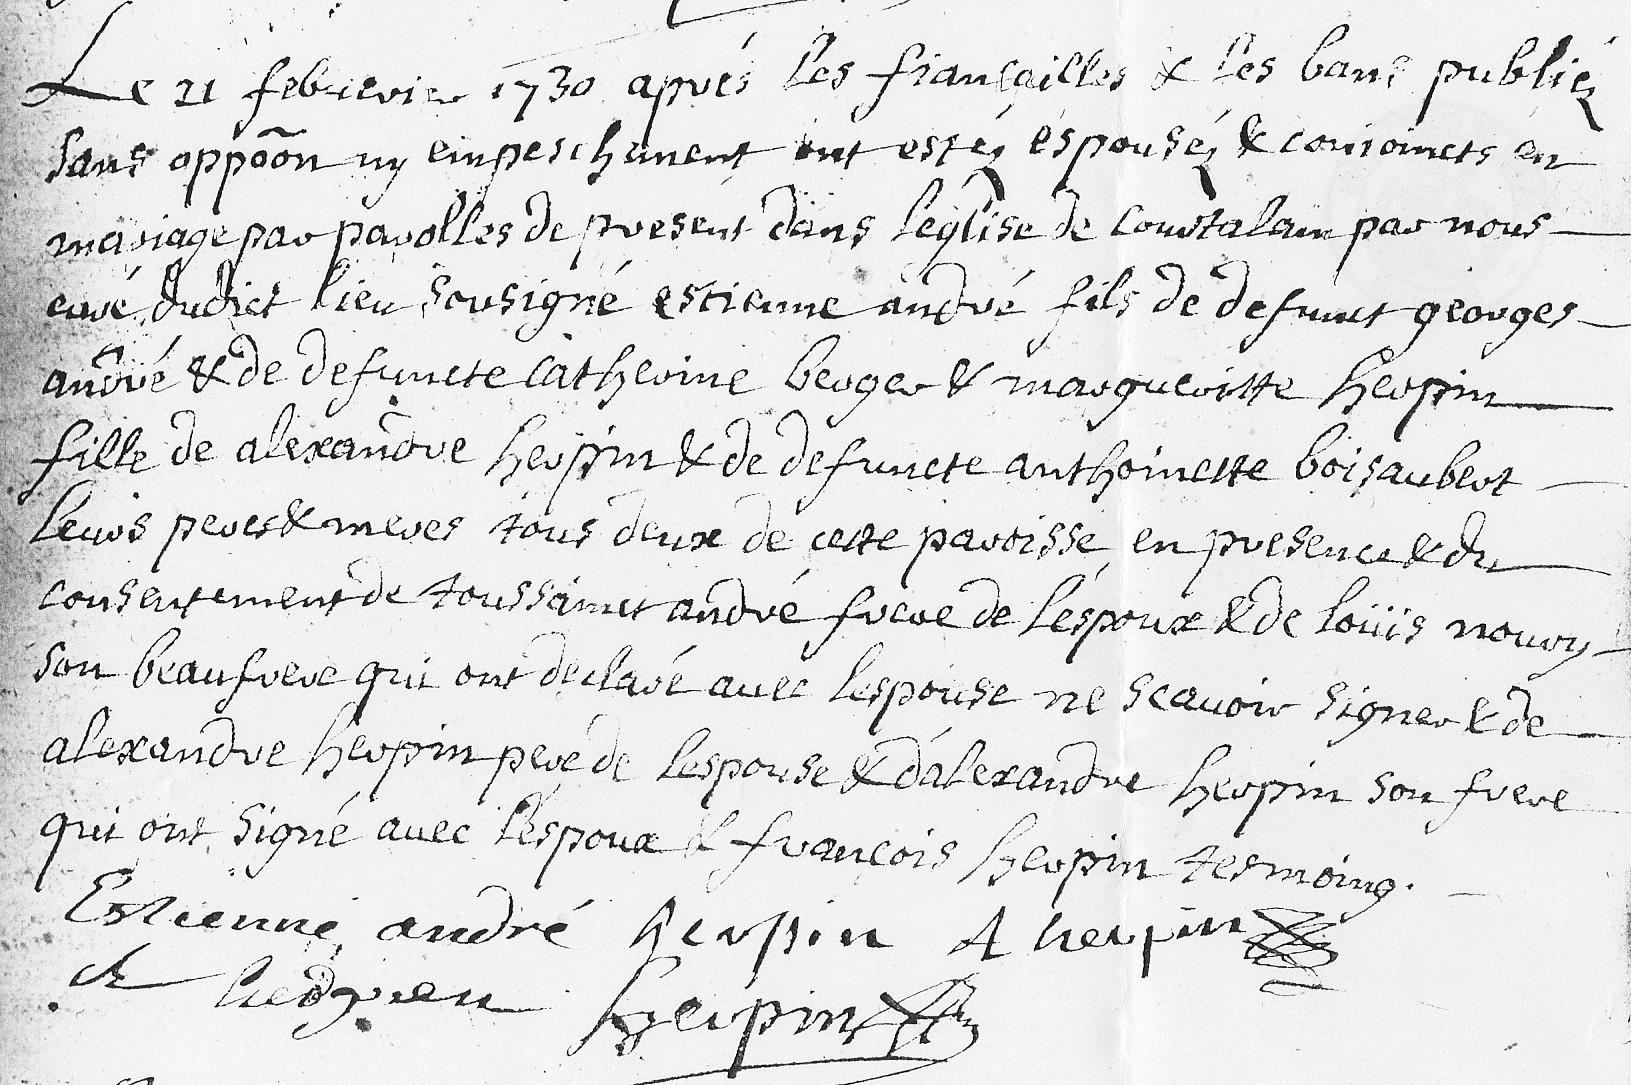 Le 21 febvrevier 1730 aprés les fiançailles & les bans publiéz
sans oppõon ny empeschement ont estéz éspouséz & conioincts en
mariage par parolles de present dans l'église de Courtalain par nous
curé dudict lieu sousigné estienne andré fils de defunct georges
andré & de defuncte catherine berger & margueritte herpin
fille de alexandre herpin & de defuncte anthoinette boisaubert
leurs peres & meres tous deux de cette paroisse, en presence & du
consentement de toussainct andré frere de l'éspoux & de loüis nourry
son beaufrere qui ont declaré avec l'espouse ne scavoir signer & de
alexandre herpin pere de lespouse & d'alexandre herpin son frere
qui ont signé avec l'éspoux & françois herpin tesmoing.
Estienne andré herpin A herpin
herpin